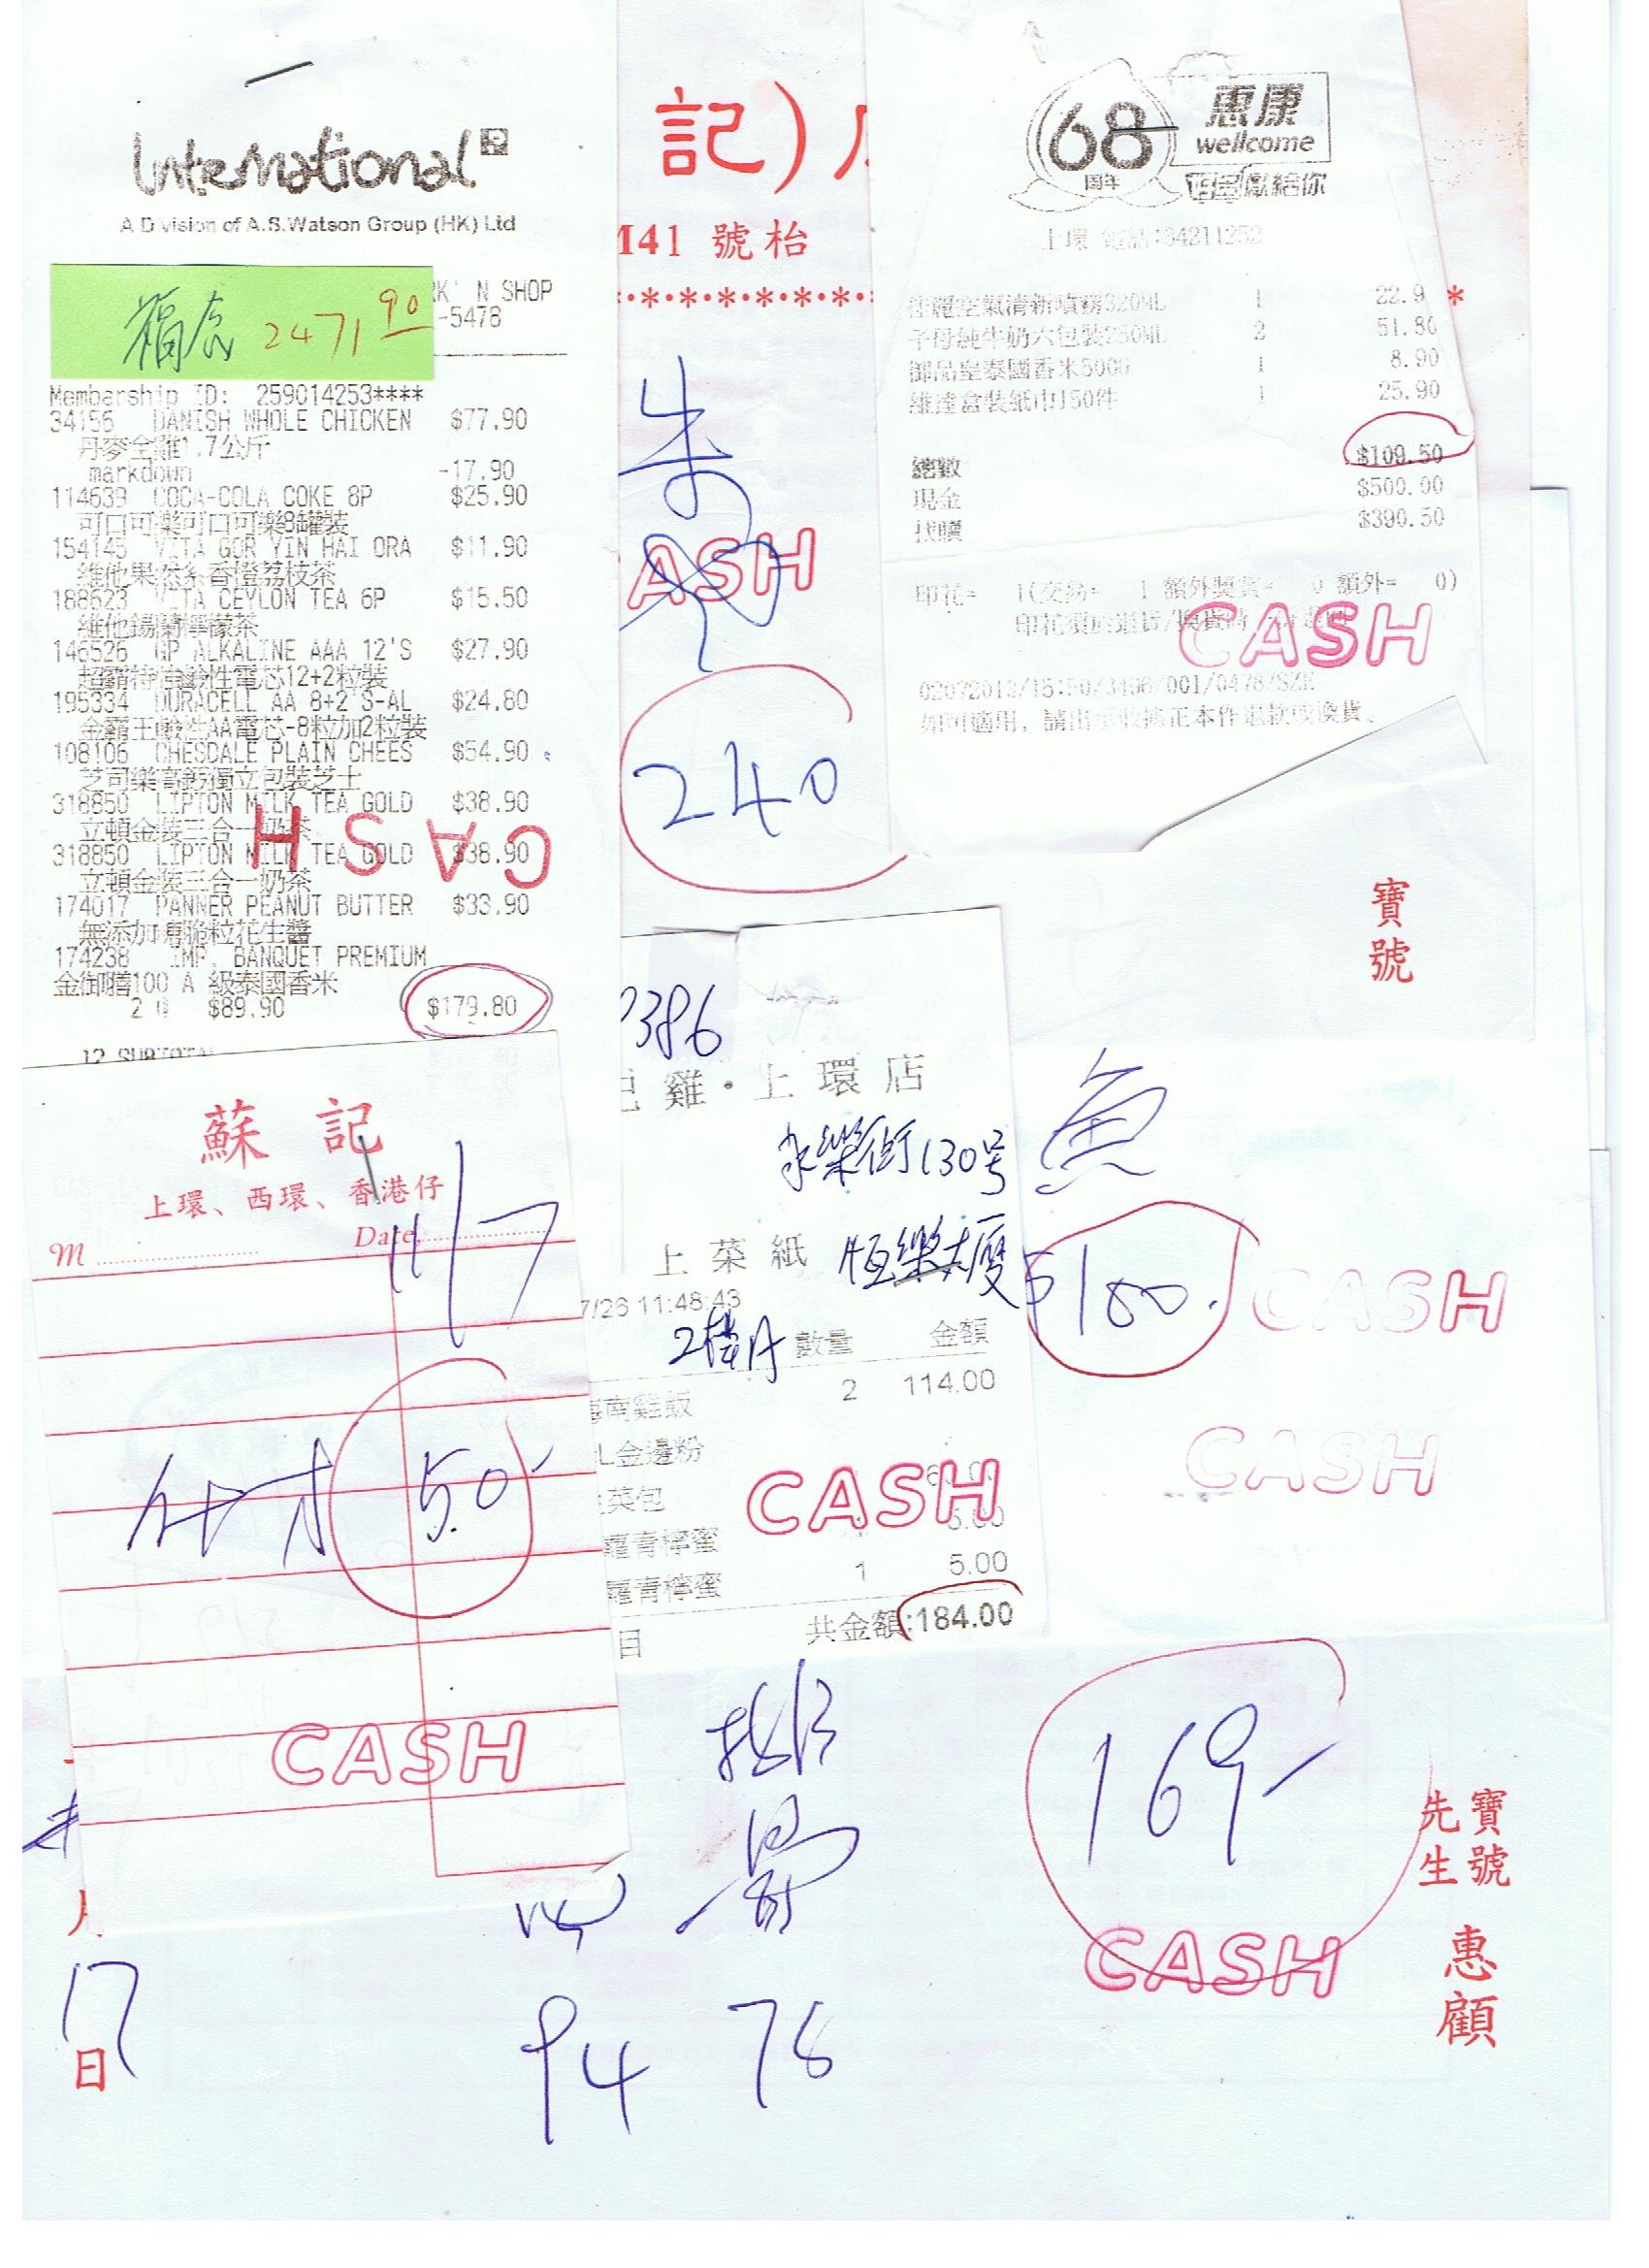 International
A Division of A.S.Watson Group (HK) Ltd
N SHOP
-5478
福 2471 90
Membership ID: 259014253****
34156 DANISH WHOLE CHICKEN $77.90
丹麥全雞1.7公斤
markdown -17.90
114639 COCA-COLA COKE 8P $25.90
可口可樂可口可樂8罐裝
154145 VITA GOR YIN HAI ORA $11.90
維他果然系香橙荔枝茶
188623 VITA CEYLON TEA 6P $15.50
維他錫蘭檸檬茶
146526 GP ALKALINE AAA 12'S $27.90
超霸特強鹼性電芯12+2粒裝
195334 DURACELL AA 8+2'S-AL $24.80
金霸王鹼性AA電芯-8粒加2粒裝
108106 CHESDALE PLAIN CHEES $54.90
芝司樂高鈣獨立包裝芝士
318850 LIPTON MILK TEA GOLD $38.90
立頓金裝三合一奶茶
318850 LIPTON MILK TEA GOLD $38.90
立頓金裝三合一奶茶
CASH
174017 PANNER PEANUT BUTTER $33.90
無添加糖脆粒花生醬
174238 IMP. BANQUET PREMIUM
金御膳100 A 級泰國香米
2 $89.90 $179.80
12 SUBTOTAL
記)
M41 號枱
********
CASH
240
68周年
惠康
wellcome
上環 電話:34211252
佳麗空氣清新噴霧320ML 1 22.9
子母純牛奶六包裝250ML 2 51.80
御品皇泰國香米500G 1 8.90
維達盒裝紙巾150件 1 25.90
總數 $109.50
現金 $500.00
找贖 $390.50
印花= 1(交易= 1 額外獎賞= 0 額外= 0)
CASH
02072013/15:50/3406/001/0478/SZE
如可適用，請出示收據正本作退款或換貨。
寶號
蘇記
上環、西環、香港仔
M Date 11/7
50
CASH
386
雞·上環店
永樂街130号
上菜紙 恒樂大廈
7/26 11:48:43
2樓A 數量 金額
海南雞飯 2 114.00
金邊粉
菜包
CASH
蘿青檸蜜 5.00
蘿青檸蜜 1 5.00
共金額:184.00
魚
$180.
CASH
CASH
169
CASH
寶號
先生
惠顧
月
17
日
94 78